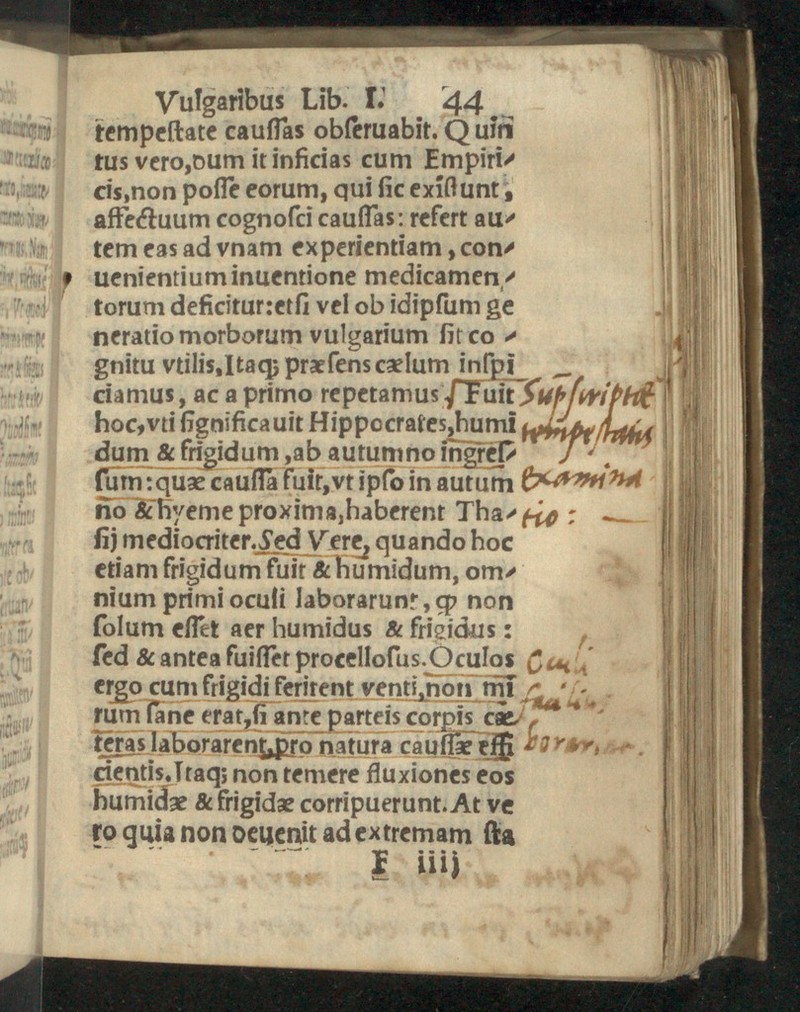 Vulgaribus Lib. I. 44
tempeſtate cauſſas obſeruabit. Quin
tus vero, dum it inficias cum Empiri⸗
cis, non poſſe eorum, qui ſic exiſtunt,
affectuum cognoſci cauſſas: refert au⸗
tem eas ad vnam experientiam, con⸗
uenientium inuentione medicamen⸗
torum deficitur: etſi vel ob idipſum ge
neratio morborum vulgarium ſit co⸗
gnitu vtilis. Itaq; præſens cælum inſpi
ciamus, ac a primo repetamus. Fuit
hoc, vti ſignificauit Hippocrates, humi
dum & frigidum, ab autumno ingreſ⸗
ſum: quæ cauſſa fuit, vt ipſo in autum
no & hyeme proxima, haberent Tha⸗
ſij mediocriter. Sed Vere, quando hoc
etiam frigidum fuit & humidum, om⸗
nium primi oculi laborarunt, ꝙ non
ſolum eſſet aer humidus & frigidus:
ſed & antea fuiſſet procelloſus. Oculos
ergo cum frigidi ferirent venti, non mĩ
rum ſane erat, ſi ante parteis corpĩs cæ⸗
teras laborarent, pro natura cauſſæ effi
cientis. Itaq; non temere fluxiones eos
humidæ & frigidæ corripuerunt. At ve
ro quia non deuenit ad extremam ſta
F iiij
Supſcriptæ
tempeſtatis
Examina
tio: